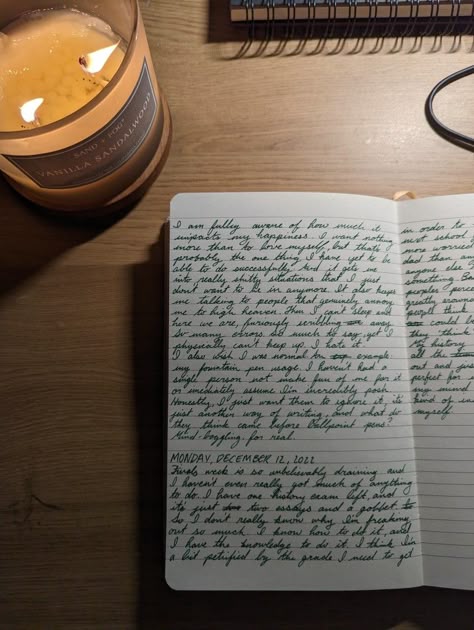 SAND + FOG
VANILLA SANDALWOOD
I am fully aware of how much it
impacts my happiness. I want nothing
more than to love myself, but that's
probably the one thing I have yet to be
able to do successfully. And it gets me
into really shitty situations that I just
don't want to be in anymore. It also keeps
me talking to people that genuinely annoy
me to high heaven. Then I can't sleep and
here we are, furiously scribbling away.
So many errors, so much to say, yet I
physically can't keep up. I hate it.
I also wish I was normal. for example,
my fountain pen usage. I haven't had a
single person not make fun of me for it
or immediately assume I'm incredibly posh.
Honestly, I just want them to ignore it, it's
just another way of writing, and what do
they think came before ballpoint pens?
Mind-boggling, for real.
MONDAY, DECEMBER 12, 2022
Finals week is so unbelievably draining and
I haven't even really got much of anything
to do. I have one history exam left, and
it's just two essays and a gobbet to
do. I don't really know why I'm freaking
out so much. I know how to do it, and
I have the knowledge to do it. I think I'm
a bit petrified by the grade I need to get
in order to
most school
more worried
dad than
anyone else
something.
people's perce
greatly
people think
could be
they think
My history
all the
out and jus
perfect for
way mind
kind of